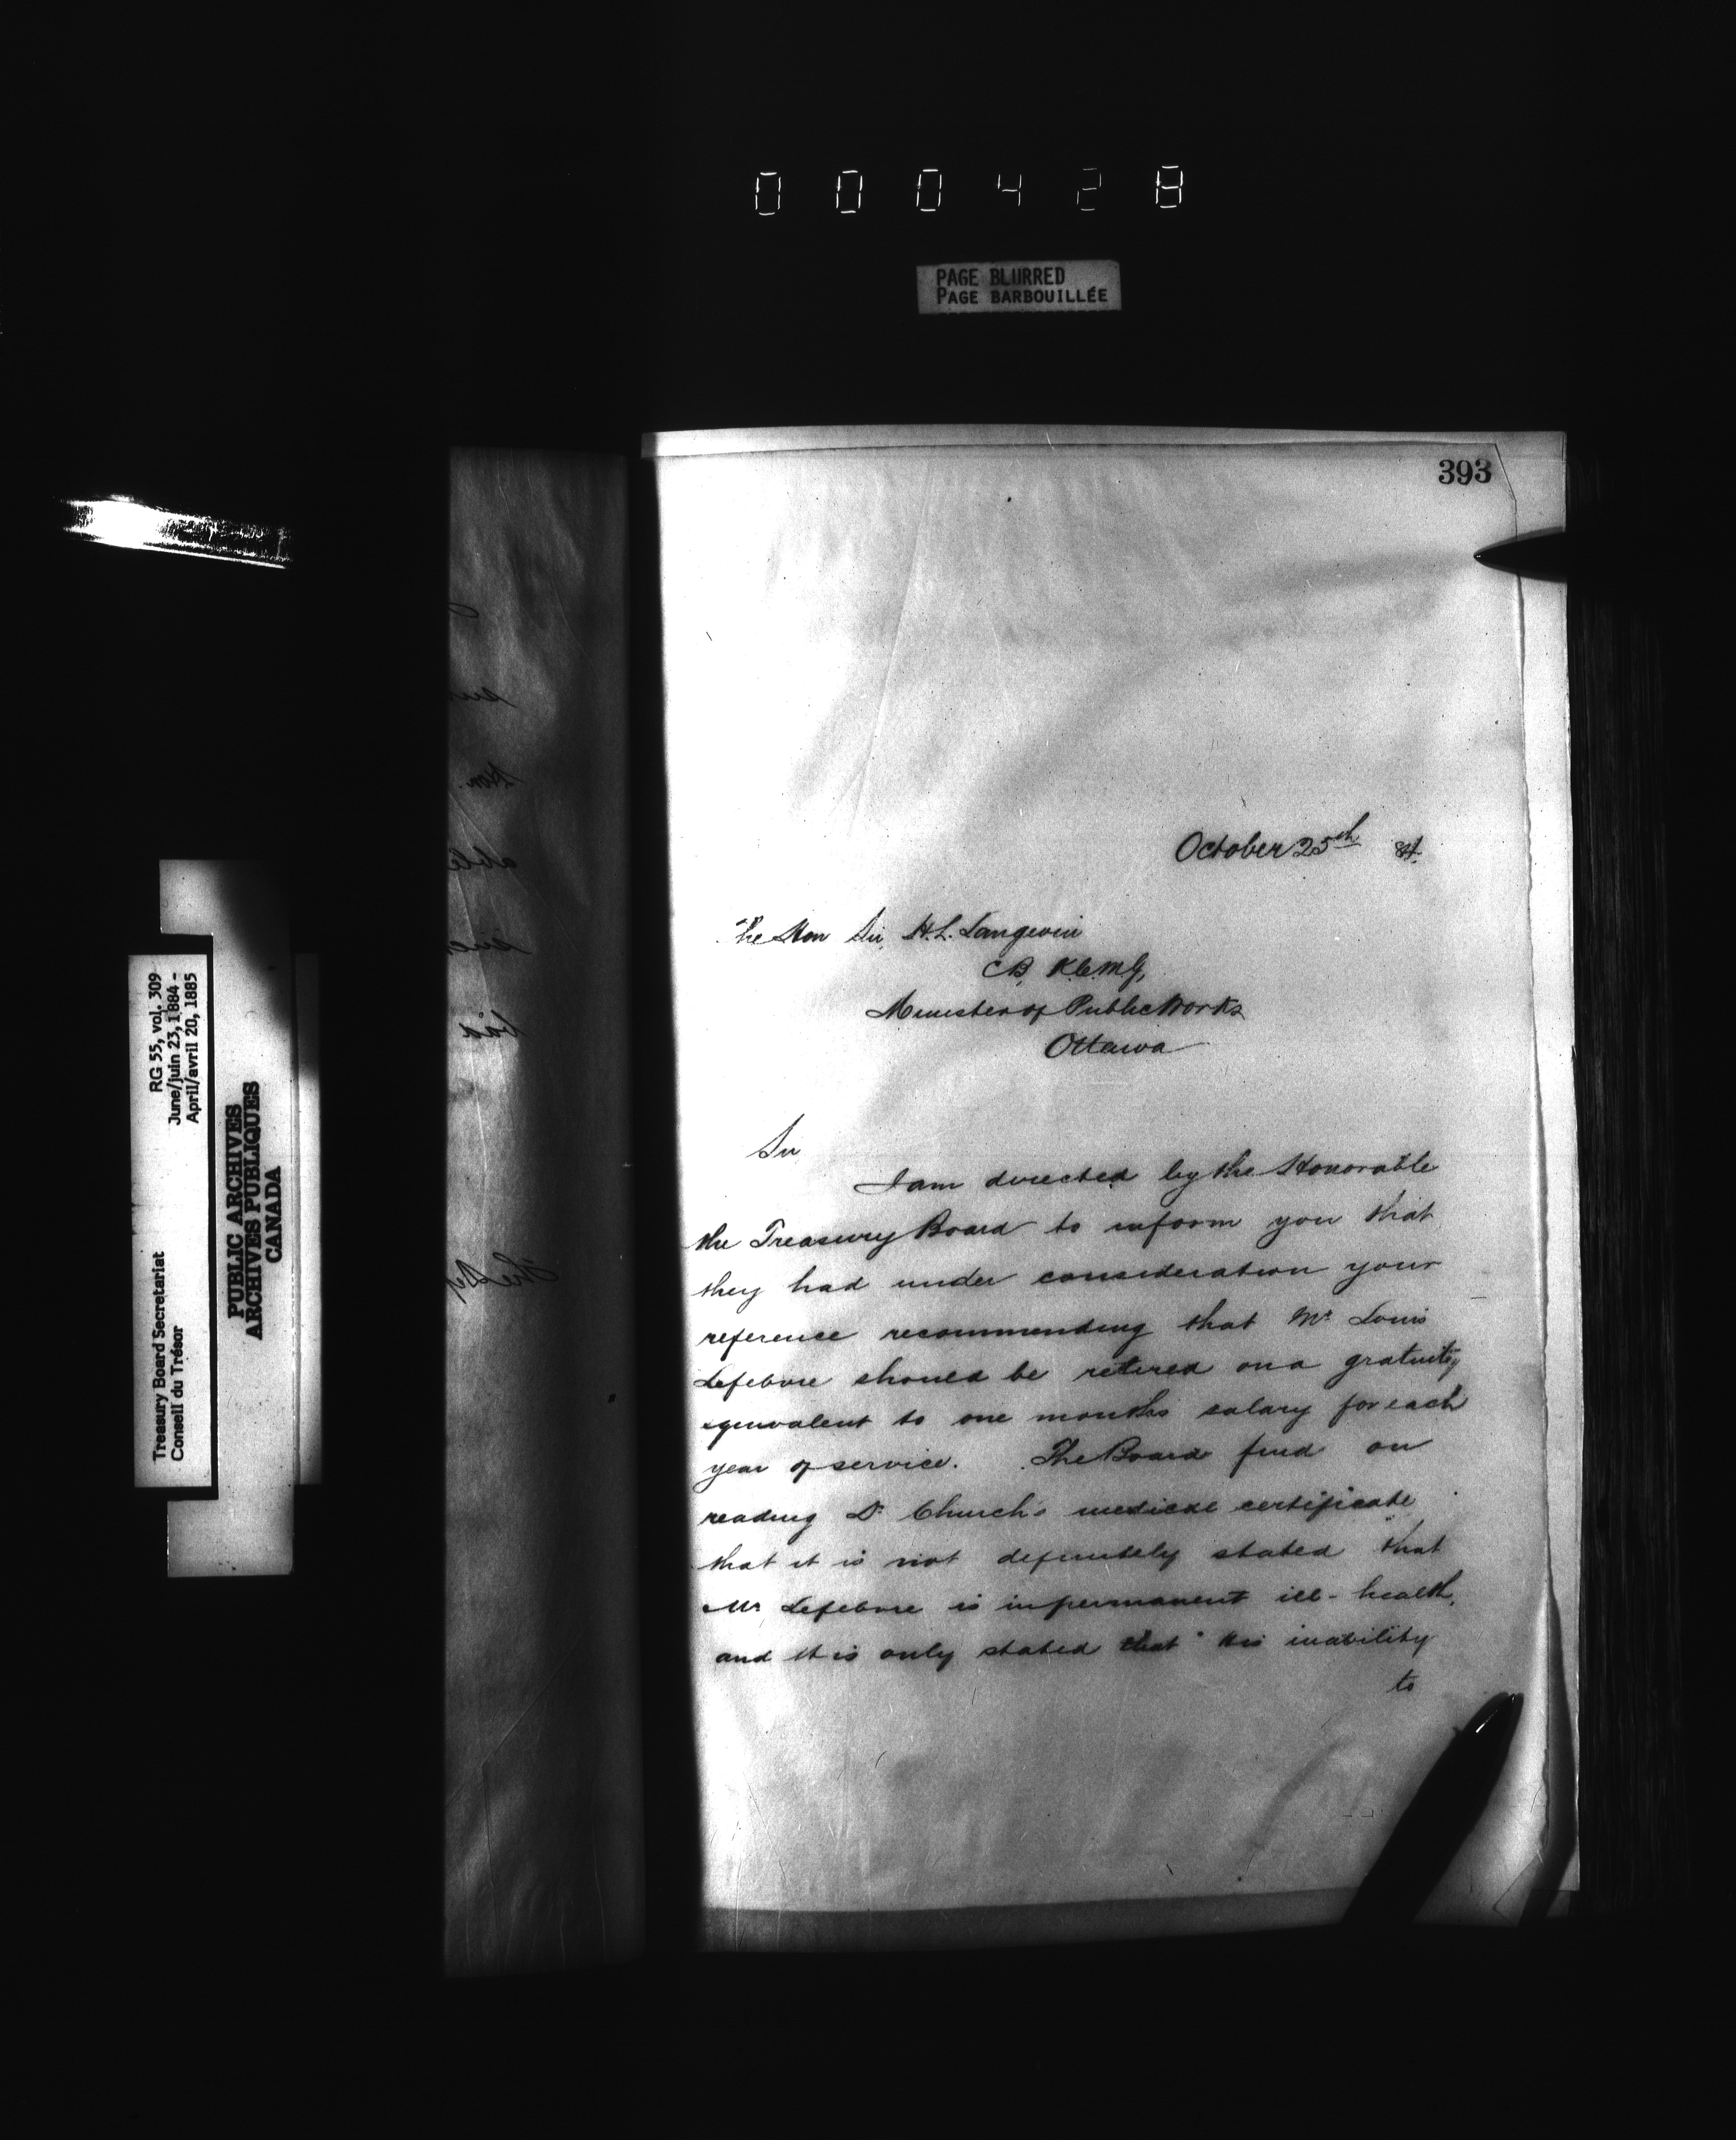 000428
PAGE BLURRED
PAGE BARBOUILLÉE
393
RG 55, vol. 309
June/juin 23, 1884 -
April/avril 20, 1885
Treasury Board Secretariat
Conseil du Trésor
PUBLIC ARCHIVES
ARCHIVES PUBLIQUES
CANADA
October 25th 84.
The Hon Sir H. L. Langevin
CB, K.C.M.G,
Minister of Public Works
Ottawa
Sir
I am directed by the Honorable
the Treasury Board to inform you that
they had under consideration your
reference recommending that Mr Louis
Lefebvre should be retired on a gratuity
equivalent to one months salary for each
year of service. The Board find on
reading Dr Church's medical certificate
that it is not definitely stated that
Mr Lefebvre is in permanent ill-health,
and it is only stated that "his inability
to